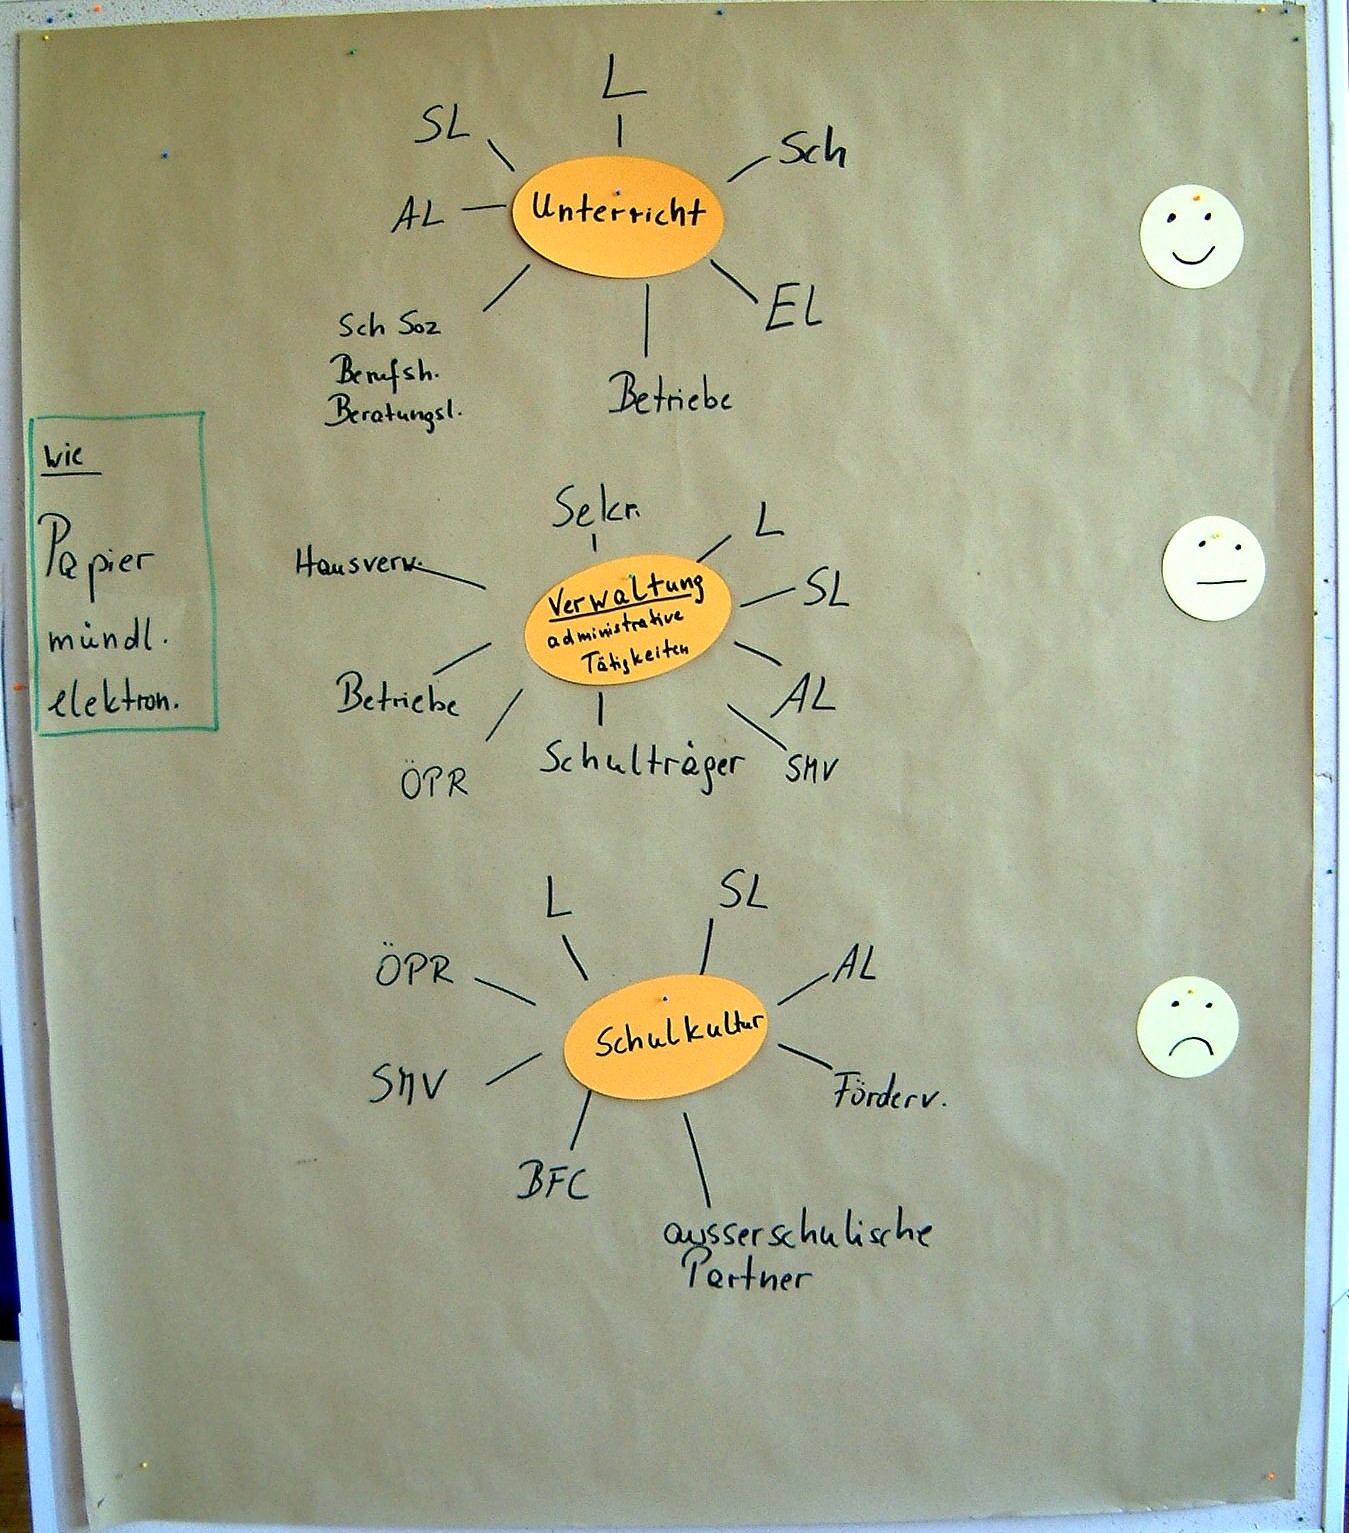 L
SL
Sch
AL
Unterricht
EL
Sch Soz
Berufsh.
Beratungsl.
Betriebe
wie
Papier
mündl.
elektron.
Sekr.
L
Hausverw.
SL
Verwaltung
administrative
Tätigkeiten
Betriebe
AL
ÖPR
Schulträger
SMV
L
SL
ÖPR
AL
Schulkultur
SMV
Förderv.
BFC
ausserschulische
Partner